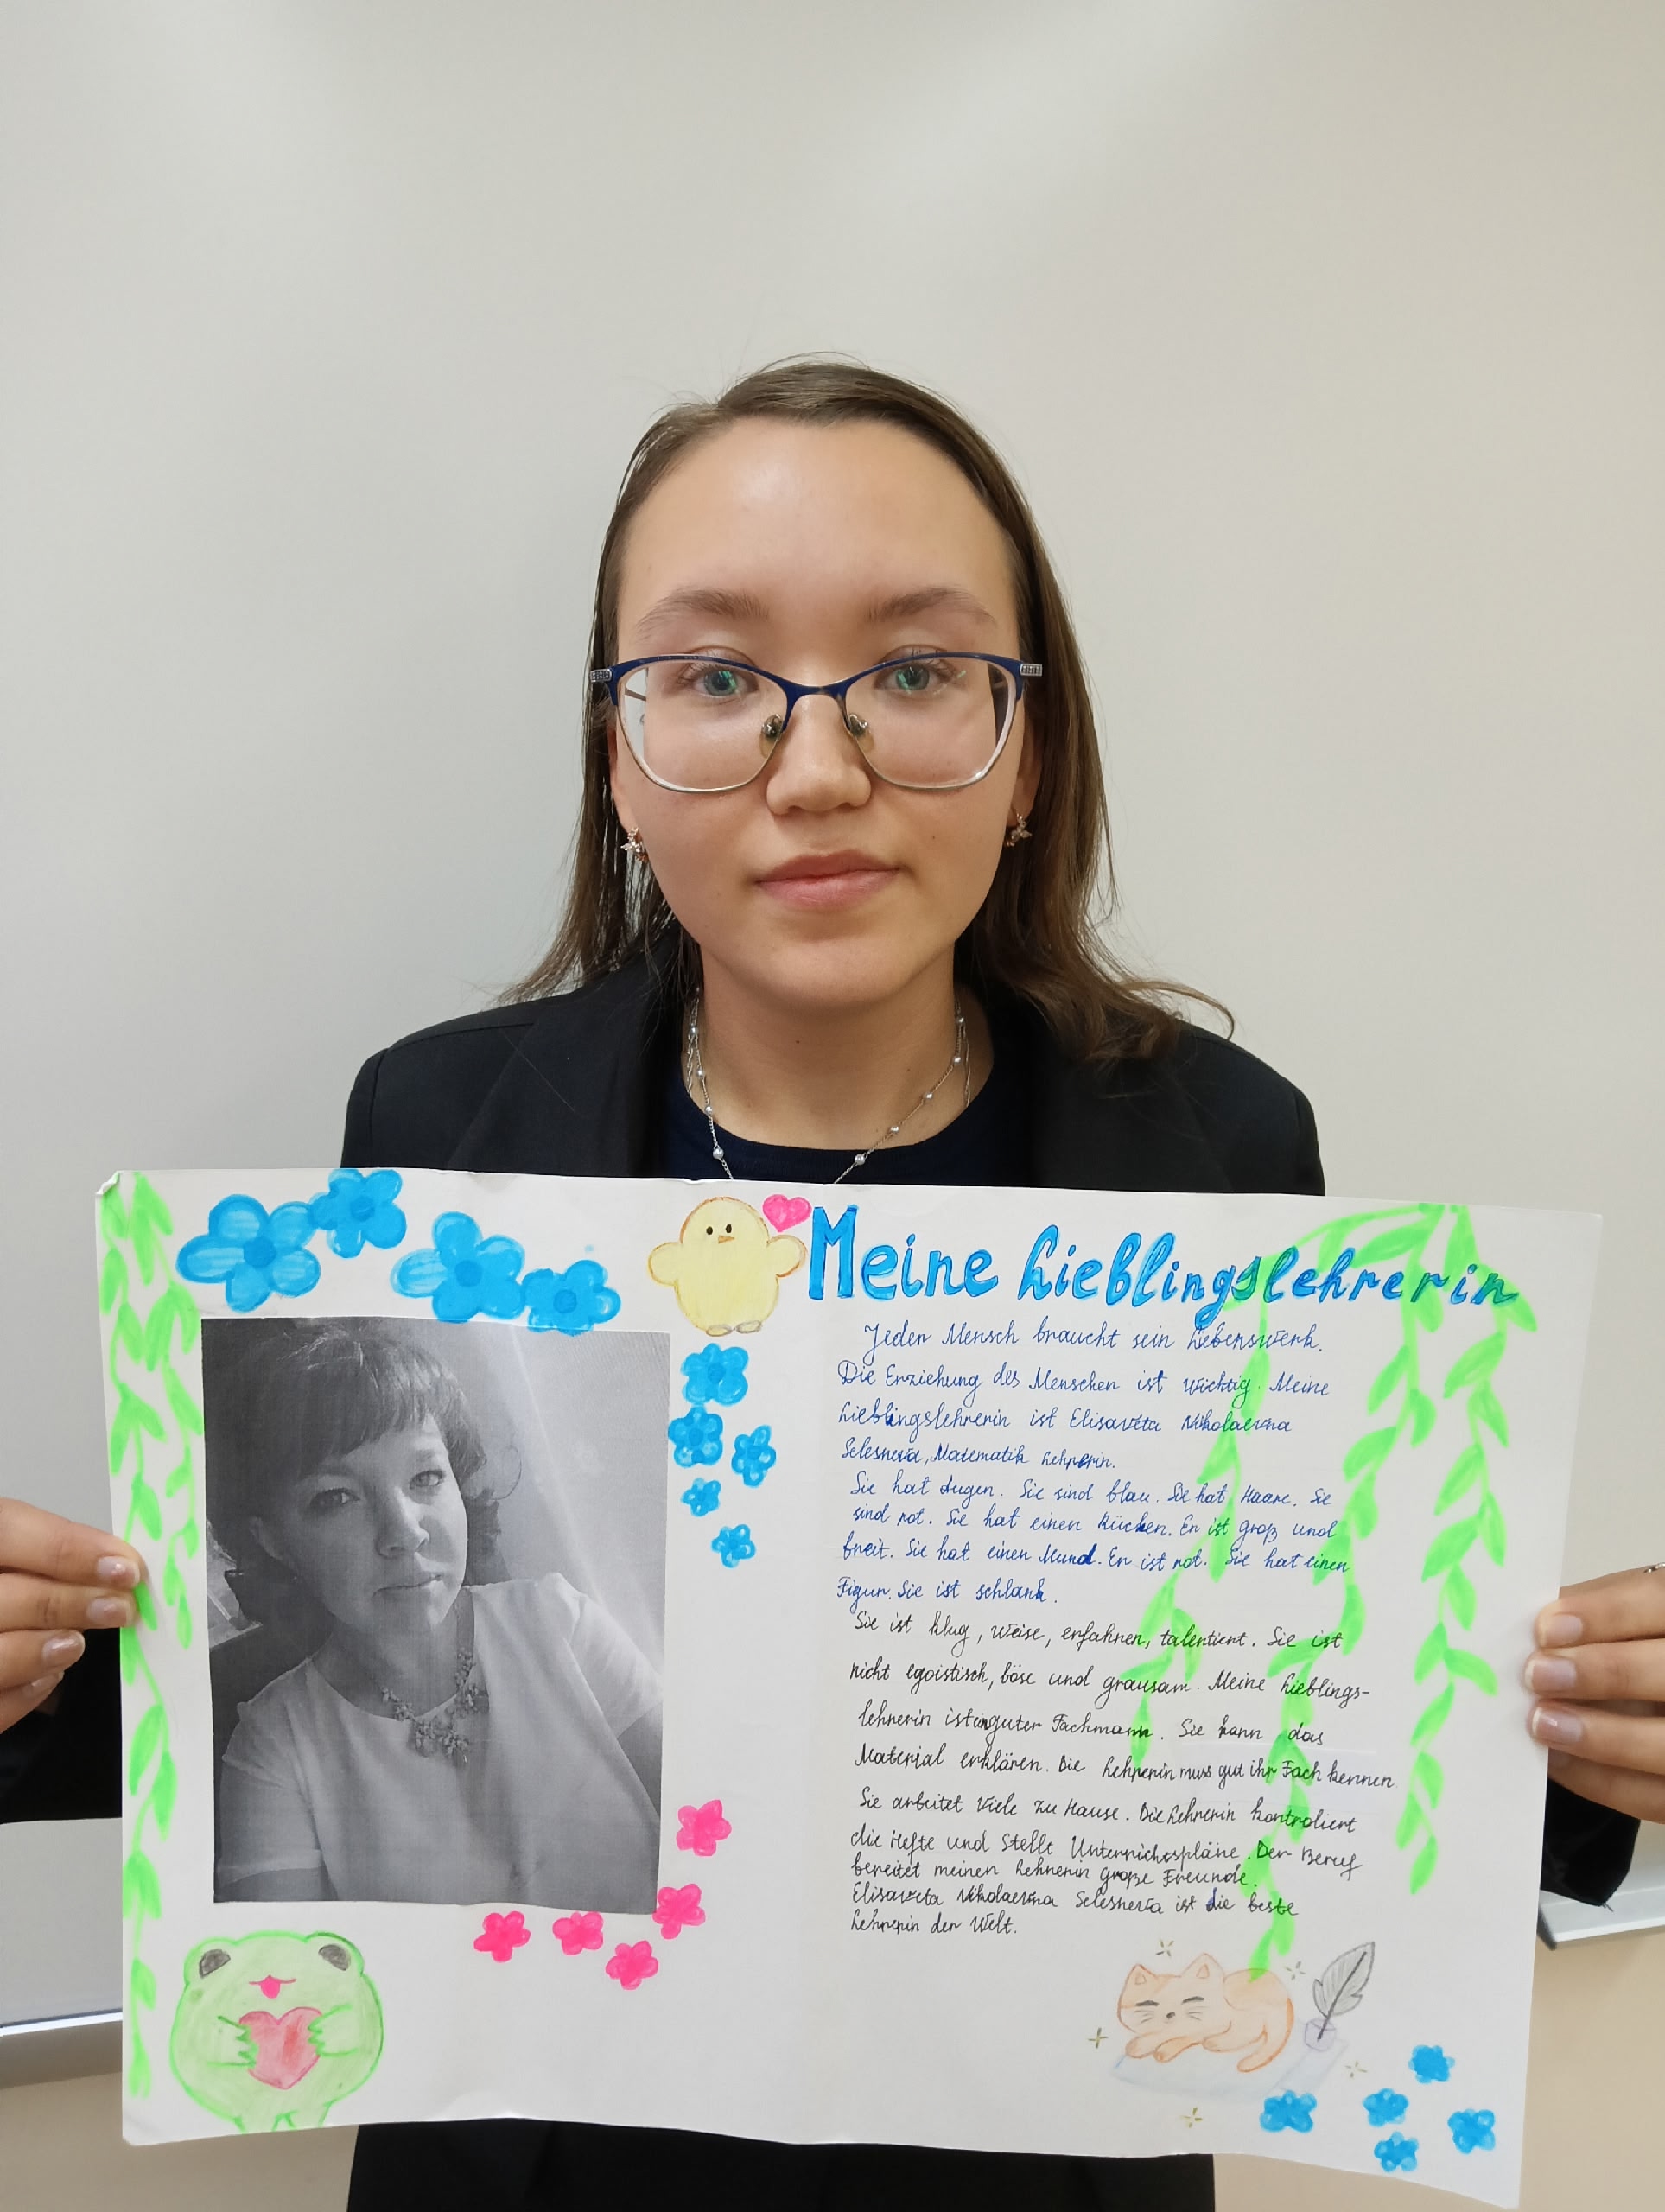 Meine Lieblingslehrerin
Jeder Mensch braucht sein Liebenswerk.
Die Erziehung des Menschen ist wichtig. Meine
Lieblingslehrerin ist Elisaveta Nikolaevna
Selesneva, Matematik Lehrerin.
Sie hat Augen. Sie sind blau. Sie hat Haare. Sie
sind rot. Sie hat einen Rücken. Er ist groß und
breit. Sie hat einen Mund. Er ist rot. Sie hat einen
Figur. Sie ist schlank.
Sie ist klug, weise, erfahren, talentiert. Sie ist
nicht egoistisch, böse und grausam. Meine Lieblings-
lehrerin ist ein guter Fachmann. Sie kann das
Material erklären. Die Lehrerin muss gut ihr Fach kennen.
Sie arbeitet viele zu Hause. Die Lehrerin kontroliert
die Hefte und stellt Unterrichspläne. Der Beruf
bereitet meinen Lehrerin große Freunde.
Elisaveta Nikolaevna Selesneva ist die beste
Lehrerin der Welt.